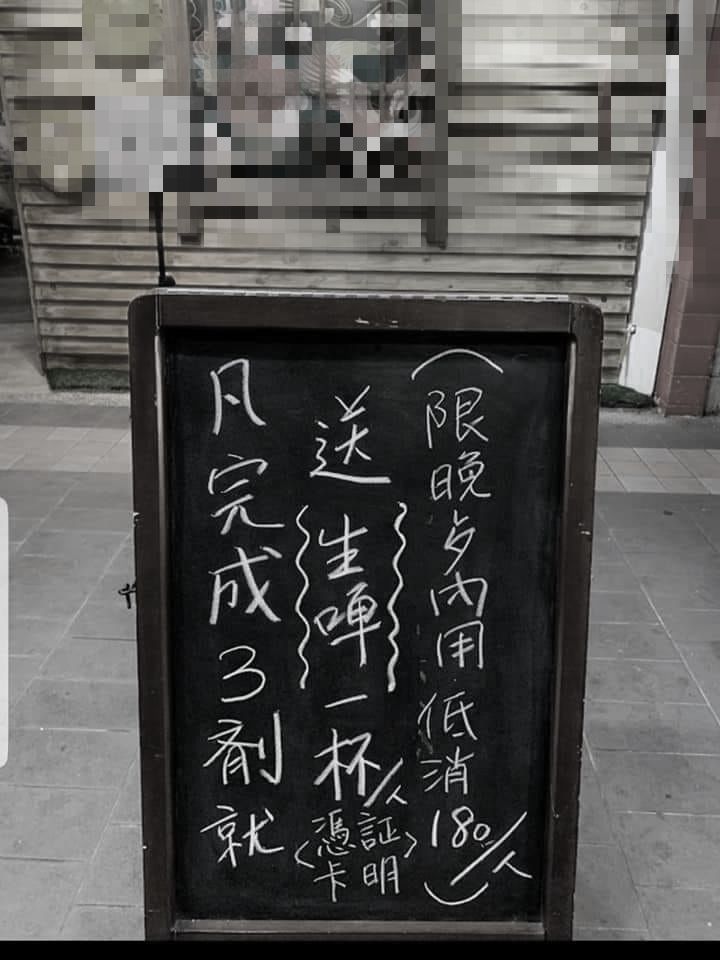 凡完成3劑就
送生啤一杯/人
〈憑卡
証明〉
(限晚歺內用低消180/人)